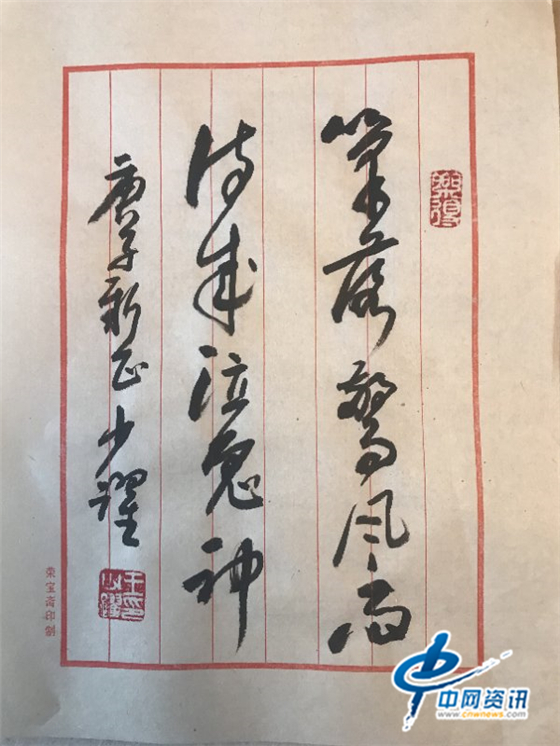 筆落驚风雨
诗成泣鬼神
庚子新正少躍
荣宝斋印制
中网资讯
www.cnwnews.com